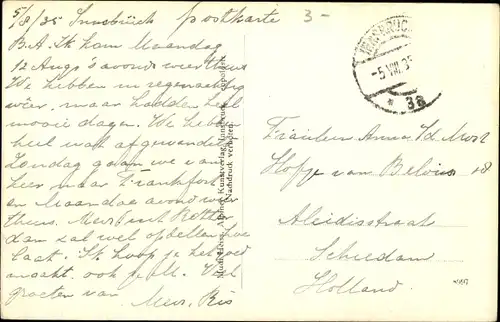 5/8/35 Innsbrück postkarte
3-
B.A. Ik kom Maandag
12 Aug's avonds weer thuis
We hebben in regenachtig
weer, maar hadden heel
mooie dagen. We hebben
heel wat afgewandeld
Zondag gaan we van
hier naar Frankfort
en Maandag avond weer
thuis. Mevr.
dan zal wel opbellen hoe
laat. Ik hoop je het goed
maakt. ook je M. Veel
groeten van
Mevr. Ris
Kunstverlag, Innsbruck
Nachdruck verboten.
INNSBRUCK
-5.VIII.35
* 3a
Fräulein Anna v/d Most
Hofje van Belois 18
Aleidisstraat
Schiedam
Holland.